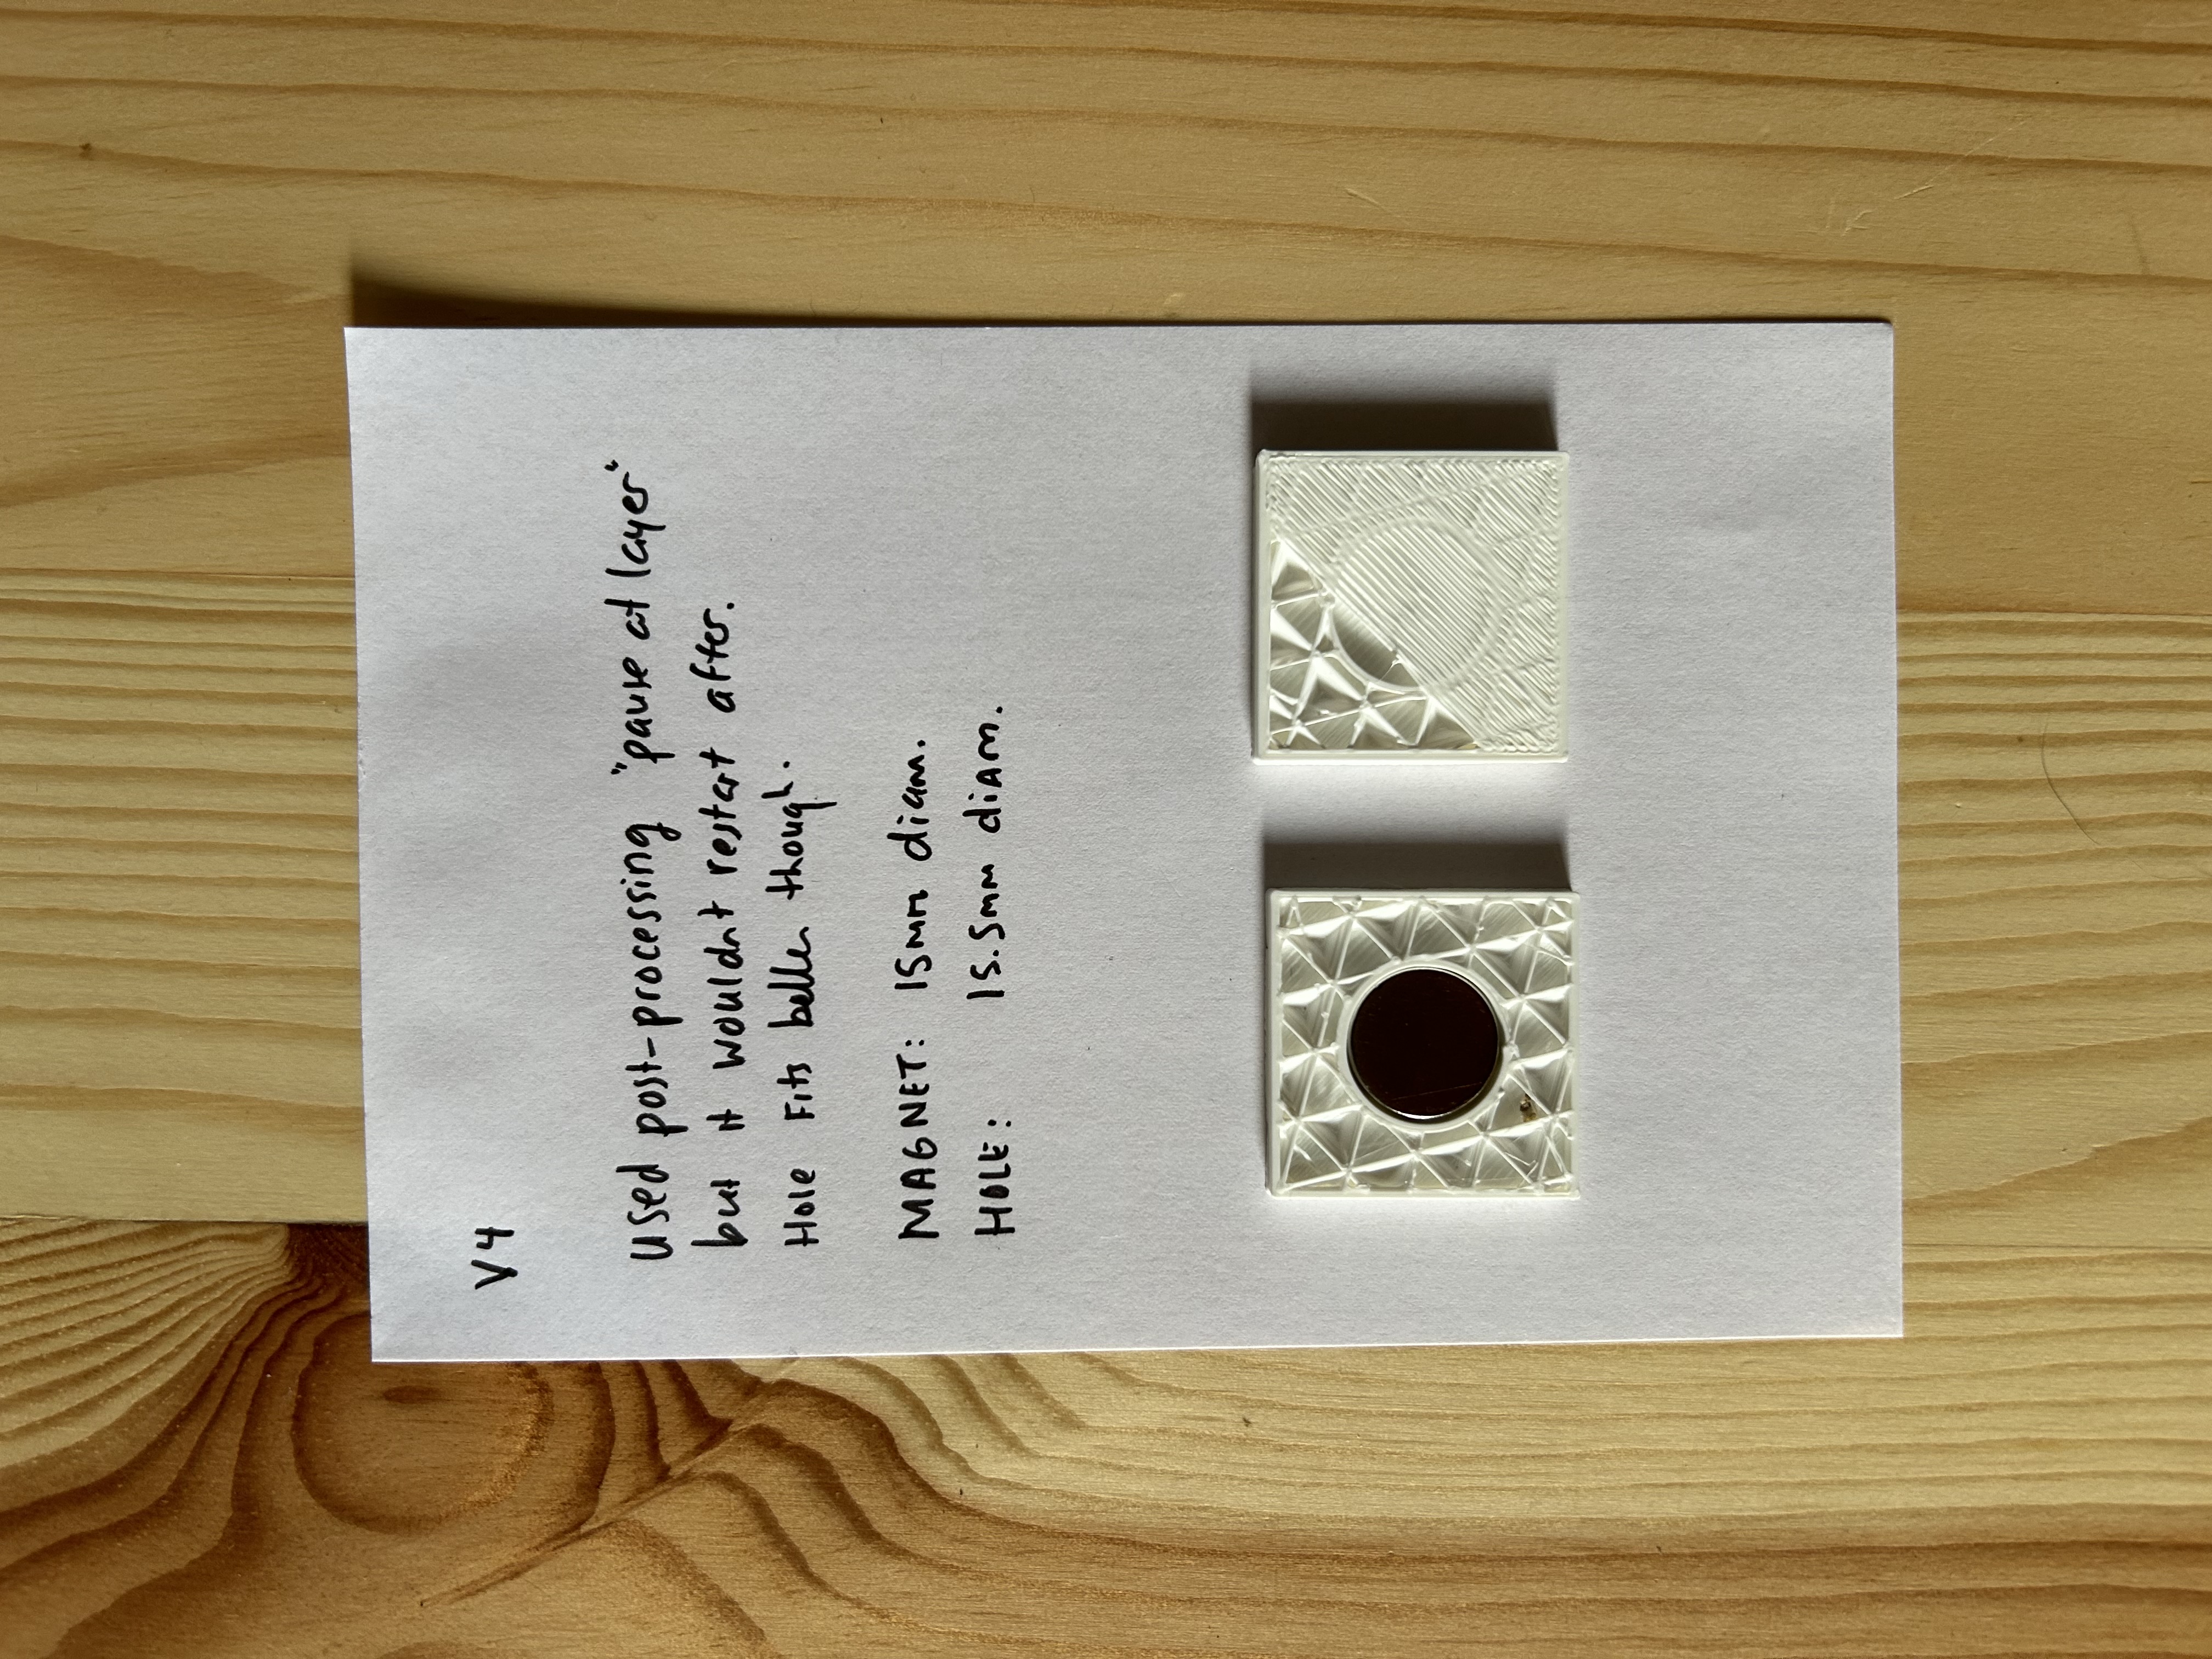 V4
Used post-processing "pause at layer"
but it wouldnt restart after.
Hole Fits better though.
MAGNET: 15mm diam.
HOLE: 15.5mm diam.